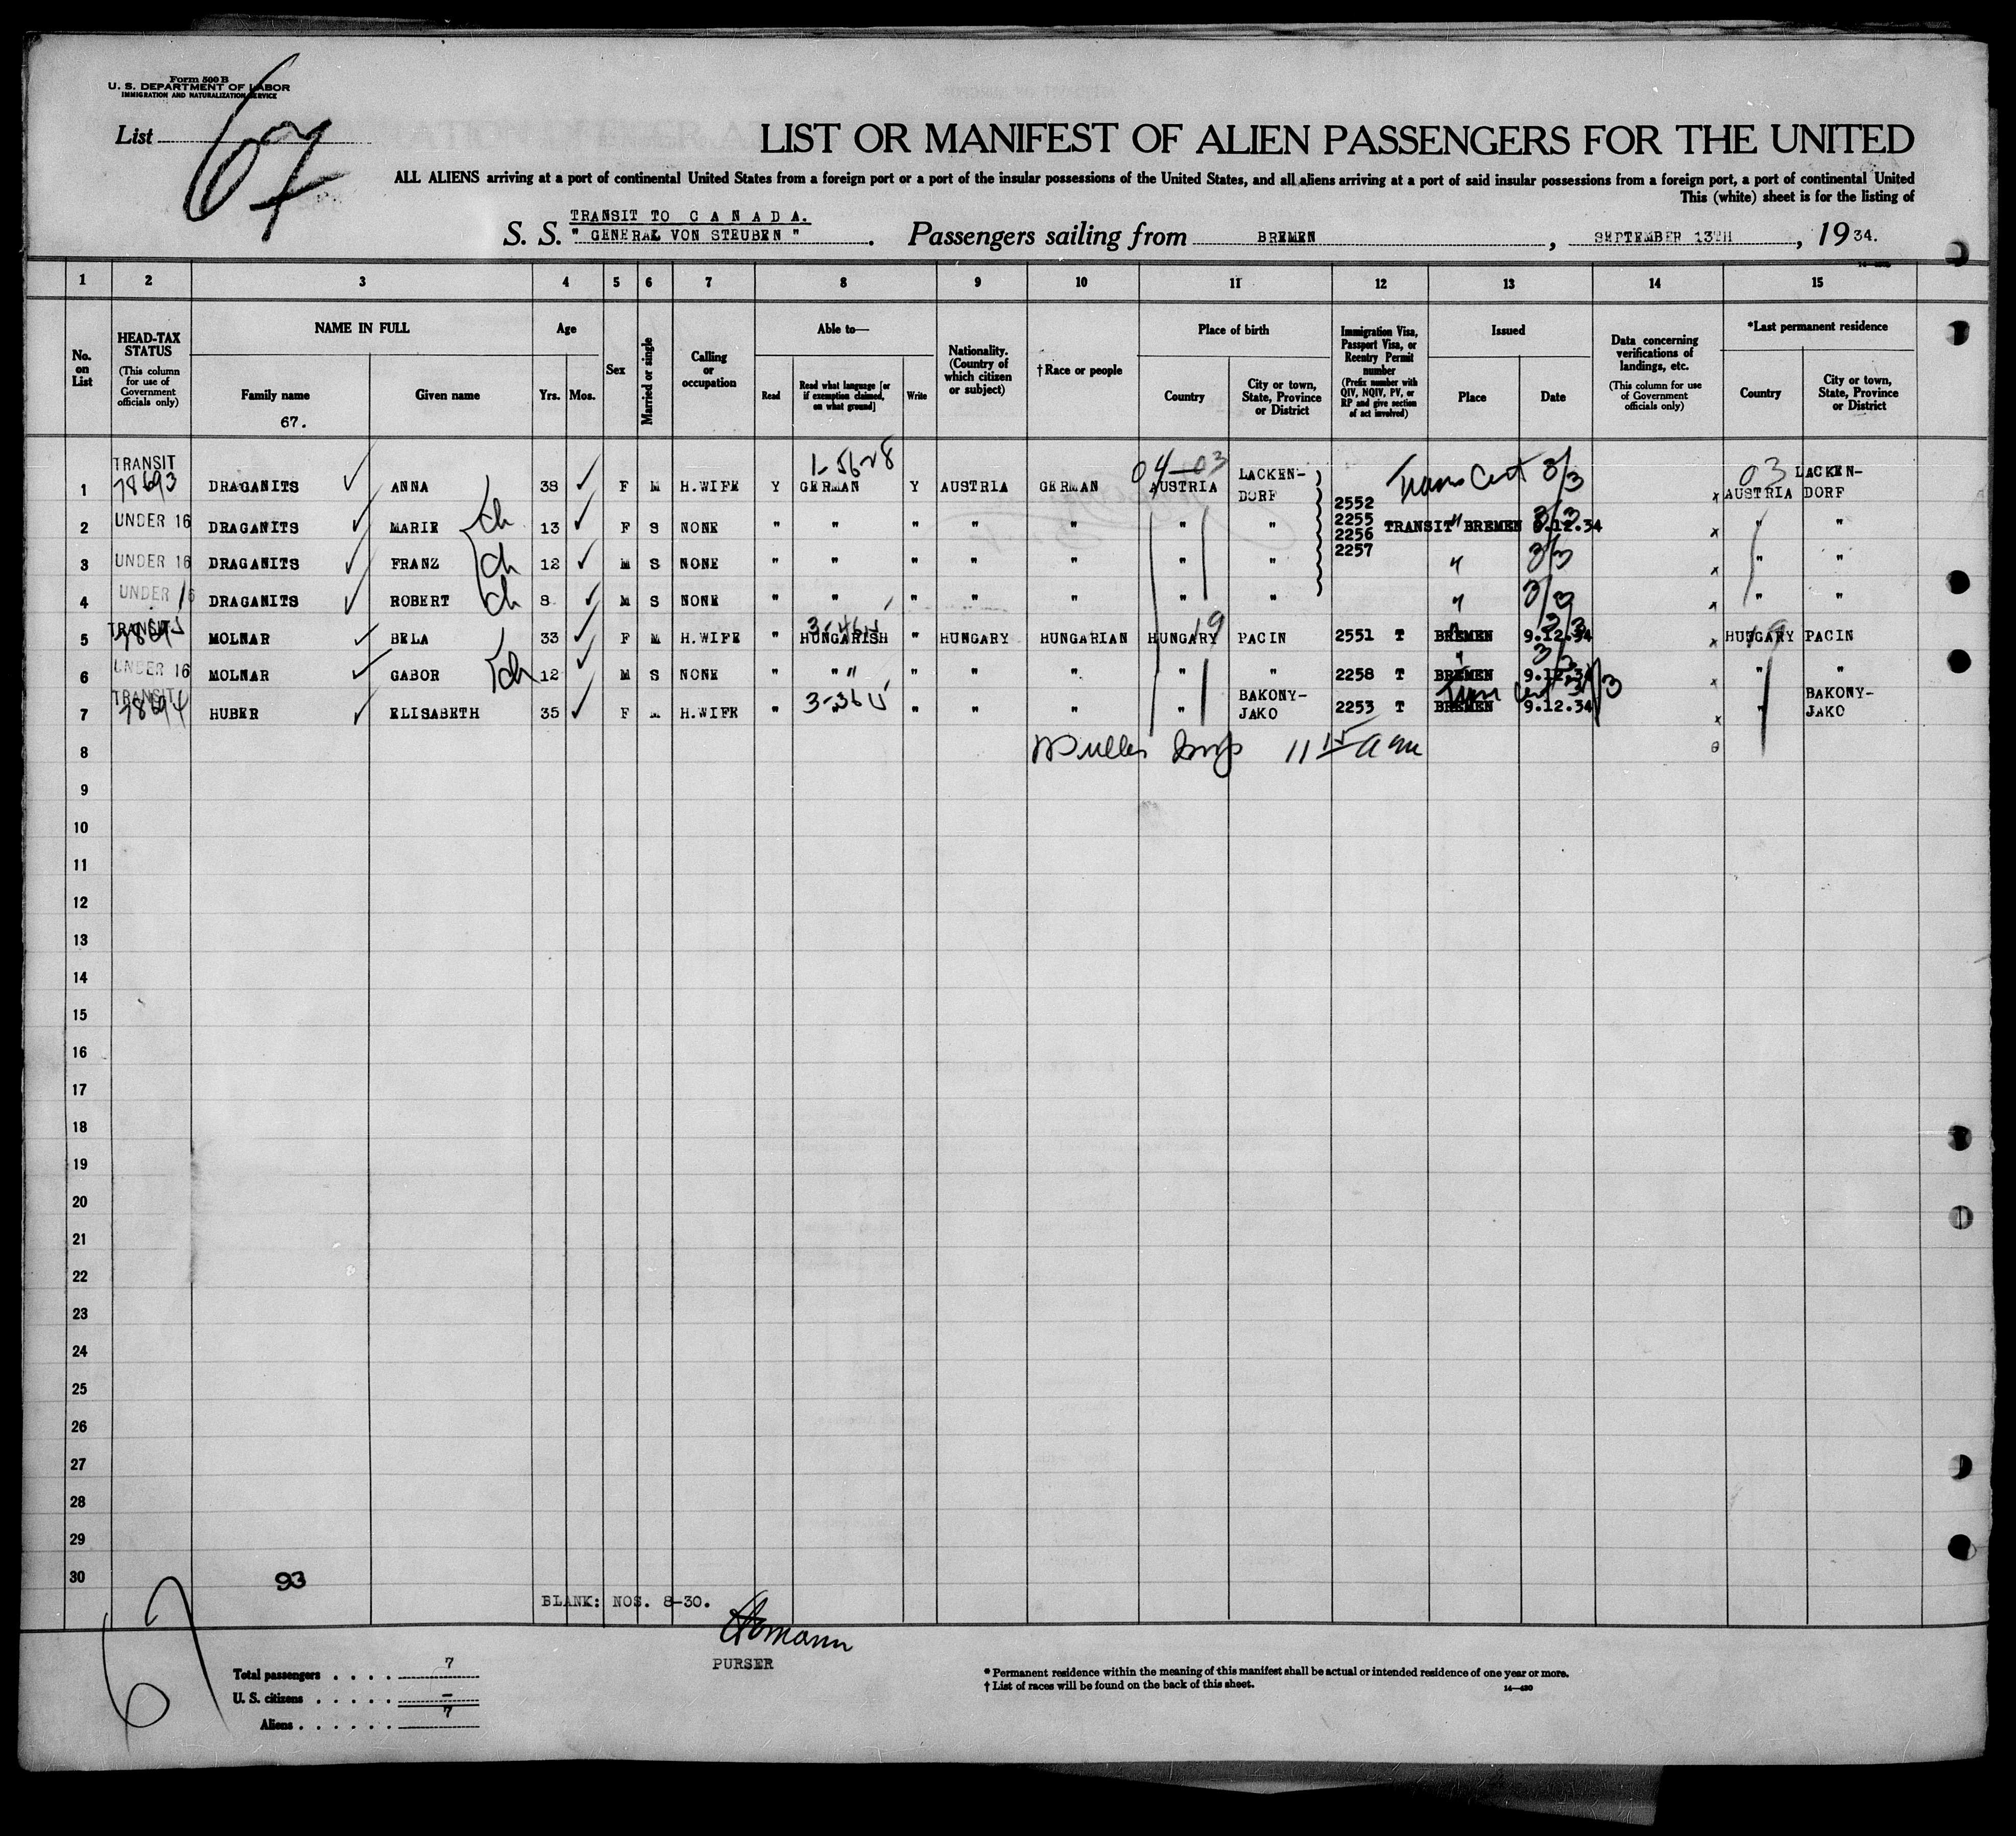 Form 500 B
U. S. DEPARTMENT OF LABOR
IMMIGRATION AND NATURALIZATION SERVICE
List 67
LIST OR MANIFEST OF ALIEN PASSENGERS FOR THE UNITED
ALL ALIENS arriving at a port of continental United States from a foreign port or a port of the insular possessions of the United States, and all aliens arriving at a port of said insular possessions from a foreign port, a port of continental United
This (white) sheet is for the listing of
TRANSIT TO C A N A D A.
S. S. " GENERAL VON STEUBEN ". Passengers sailing from BREMEN, SEPTEMBER 13TH, 1934.
1 2 3 4 5 6 7 8 9 10 11 12 13 14 15
No. on List
HEAD-TAX STATUS (This column for use of Government officials only)
NAME IN FULL
Family name
67.
Given name
Age
Yrs. Mos.
Sex
Married or single
Calling or occupation
Able to—
Read
Read what language [or if exemption claimed, on what ground]
Write
Nationality. (Country of which citizen or subject)
† Race or people
Place of birth
Country
City or town, State, Province or District
Immigration Visa, Passport Visa, or Reentry Permit number (Prefix number with QIV, NQIV, PV, or RP and give section of act involved)
Issued
Place
Date
Data concerning verifications of landings, etc. (This column for use of Government officials only)
*Last permanent residence
Country
City or town, State, Province or District
TRANSIT 1-5628 04-03 Trans Cert 3/3 03
1 78693 DRAGANITS ANNA 38 F M H.WIFE Y GERMAN Y AUSTRIA GERMAN AUSTRIA LACKEN-DORF 2552 x AUSTRIA LACKEN-DORF
2 UNDER 16 DRAGANITS MARIE ch 13 F S NONE " " " " " " " 2255 2256 TRANSIT BREMEN 9.12.34 3/3 x " "
3 UNDER 16 DRAGANITS FRANZ ch 12 M S NONE " " " " " " " 2257 " 3/3 x " "
4 UNDER 16 DRAGANITS ROBERT ch 8 M S NONE " " " " " " " " 3/3 x " "
5 TRANSIT MOLNAR BELA 33 F M H.WIFE " HUNGARISH " HUNGARY HUNGARIAN HUNGARY 19 PACIN 2551 T BREMEN 9.12.34 x HUNGARY 19 PACIN
6 UNDER 16 MOLNAR GABOR ch 12 M S NONE " " " " " " " " 2258 T BREMEN 9.12.34 3/3 x " "
7 TRANSIT 78694 HUBER ELISABETH 35 F M H.WIFE " " " " " " BAKONY-JAKO 2253 T BREMEN 9.12.34 3/3 x " BAKONY-JAKO
8 11 15 am
9
10
11
12
13
14
15
16
17
18
19
20
21
22
23
24
25
26
27
28
29
30 93
BLANK: NOS. 8-30.
67
PURSER
Total passengers . . . . 7
U. S. citizens . . . . . –
Aliens . . . . . . 7
* Permanent residence within the meaning of this manifest shall be actual or intended residence of one year or more.
† List of races will be found on the back of this sheet.
14—430